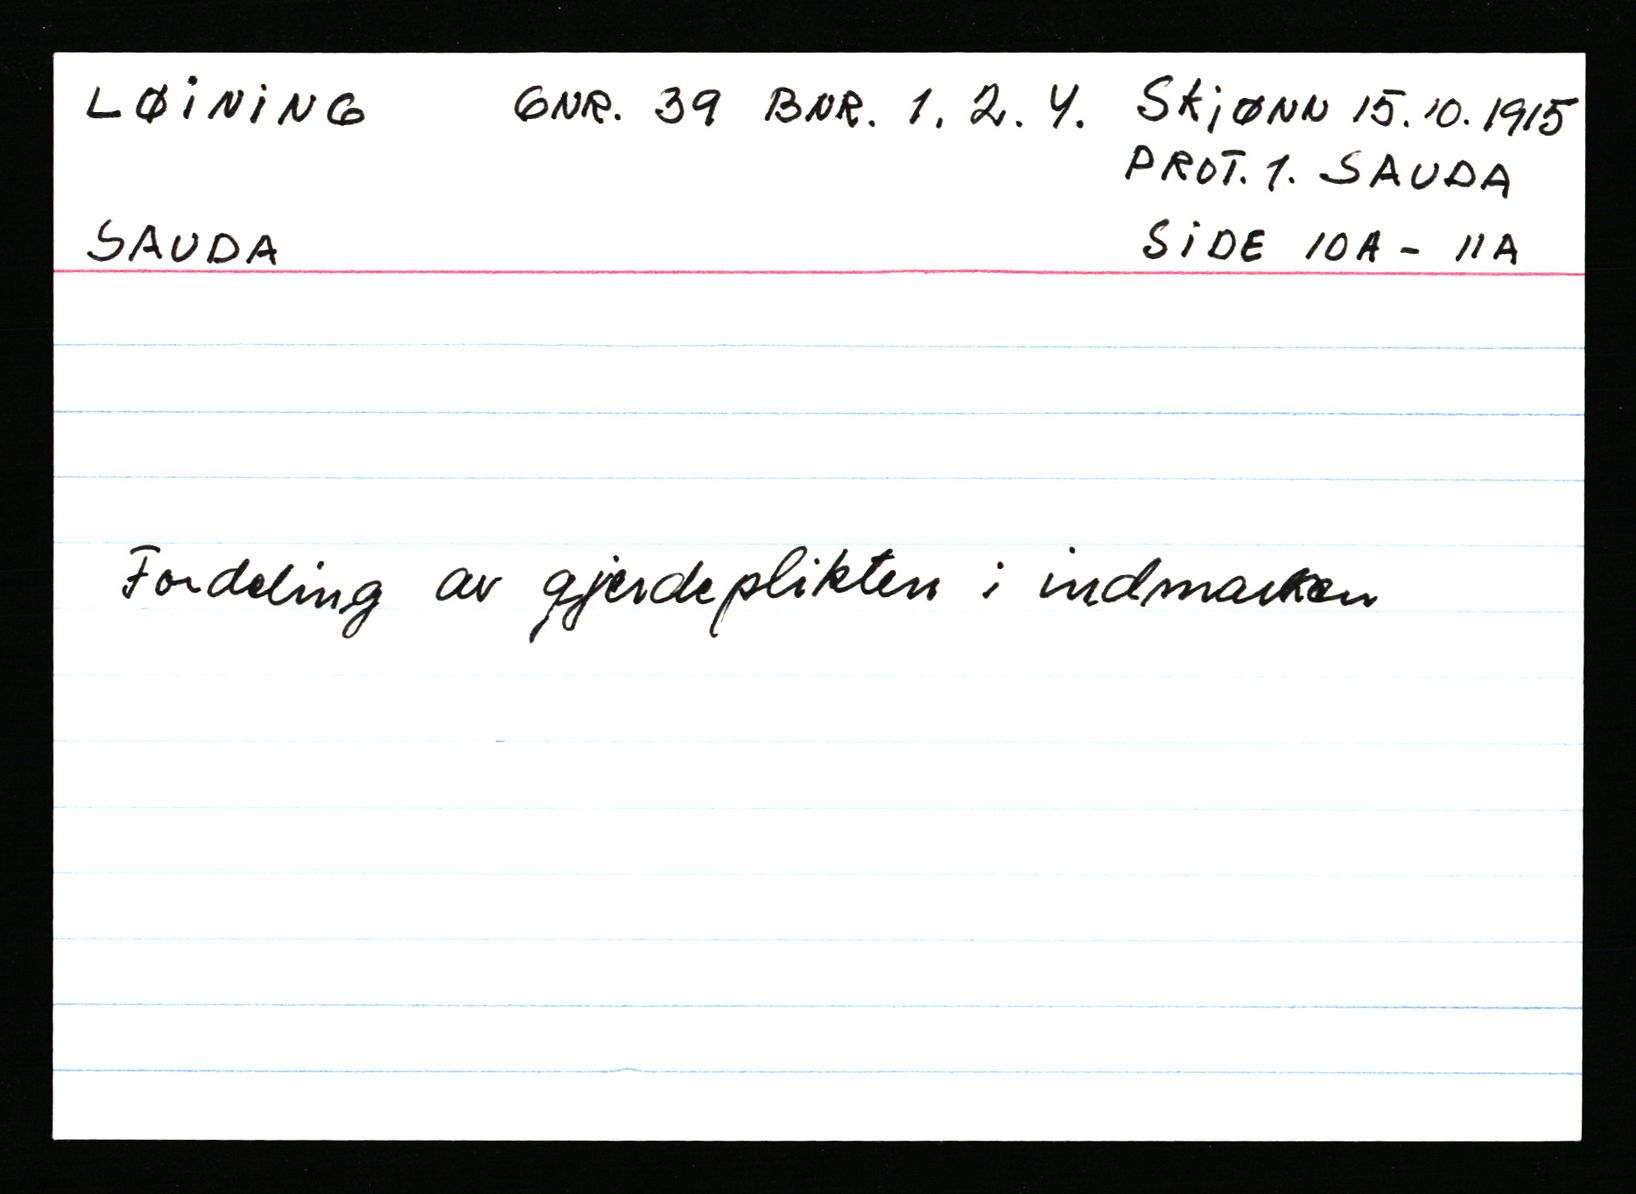 LØINING GNR. 39 BNR. 1. 2. 4. Skjønn 15.10.1915
PROT. 1. SAUDA
SAUDA SIDE 10A - 11A
Fordeling av gjerdeplikten i indmarken